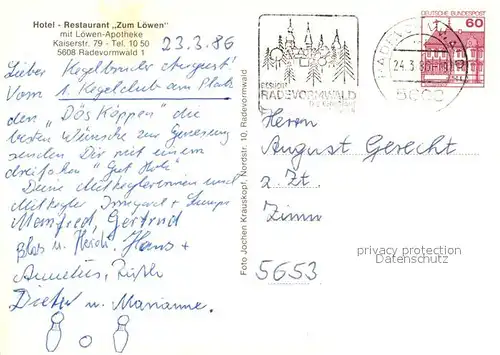 Hotel - Restaurant „Zum Löwen"
mit Löwen-Apotheke
Kaiserstr. 79 - Tel. 10 50
5608 Radevormwald 1
23.3.86
Lieber Kegelbruder August!
Vom 1. Kegelclub am Platz
den „DösKöppen" die
besten Wünsche zur Genesung
senden Dir mit einem
dreifachen "Gut Holz"
Deine Mitkeglerinnen und
Mitkegler Irmgard +
Manfred, Gertrud
u. Heidi, Hans +
Annelies,
Dieter u. Marianne.
Foto Jochen Krauskopf, Nordstr. 10, Radevormwald
RADEVORMWALD
DEUTSCHE BUNDESPOST
60
24.3.86
Herrn
August Gerecht
z. Zt.
5653
privacy protection
Datenschutz